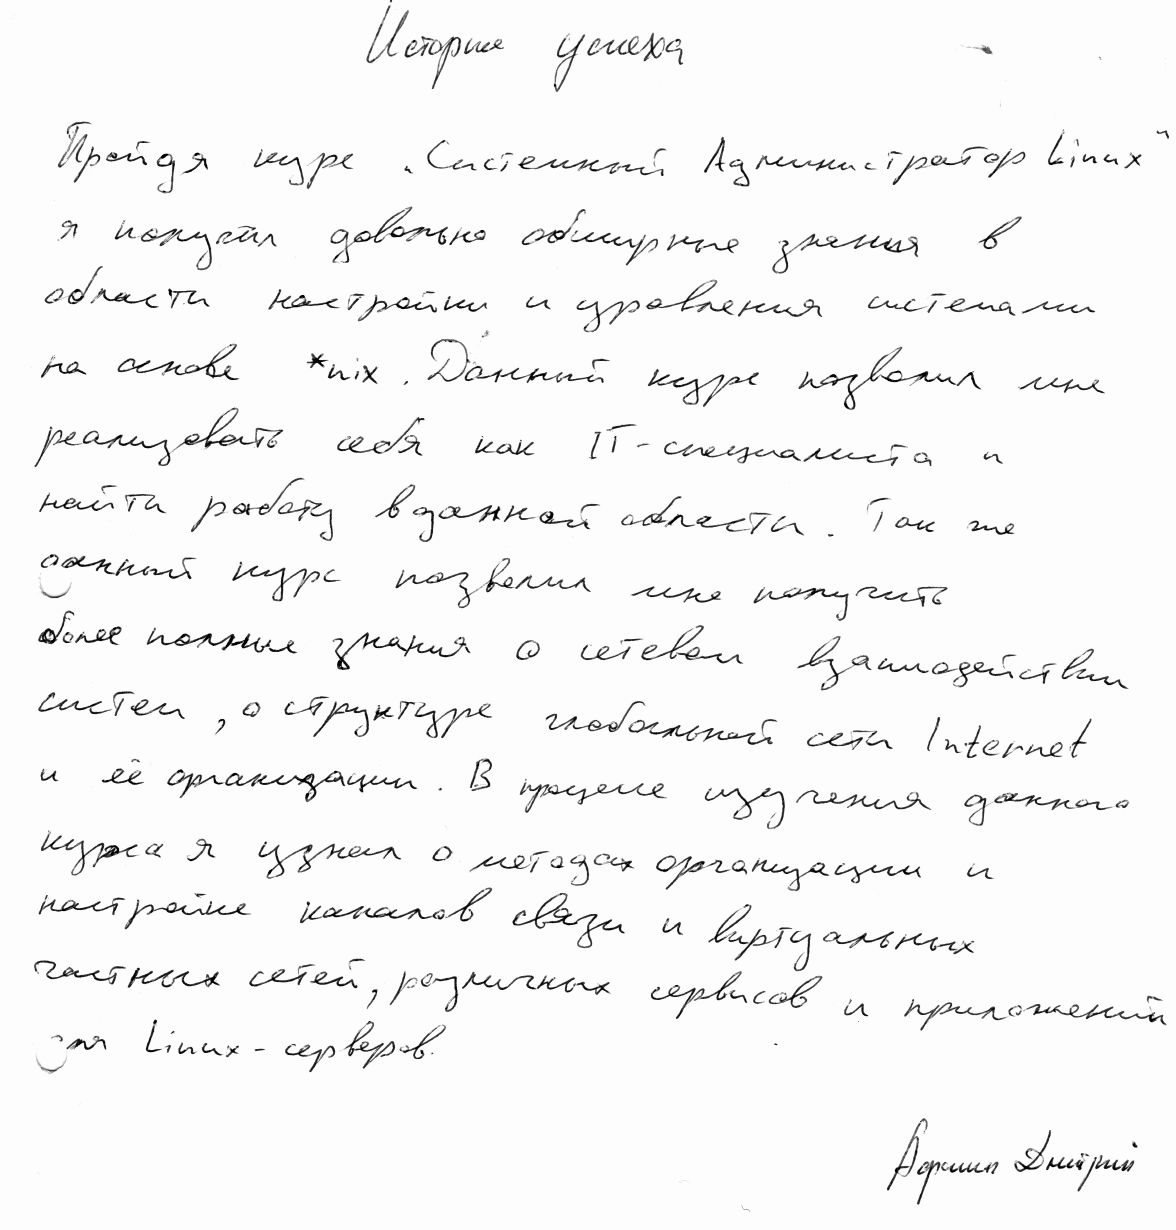 История успеха
Пройдя курс "Системный Администратор Linux"
я получил довольно обширные знания в
области настройки и управления системами
на основе *nix. Данный курс позволил мне
реализовать себя как IT-специалиста и
найти работу в данной области. Так же
данный курс позволил мне получить
более полные знания о сетевом взаимодействии
систем, о структуре глобальной сети Internet
и её организации. В процессе изучения данного
курса я узнал о методах организации и
настройке каналов связи и виртуальных
частных сетей, различных сервисов и приложений
для Linux-серверов.
Дмитрий